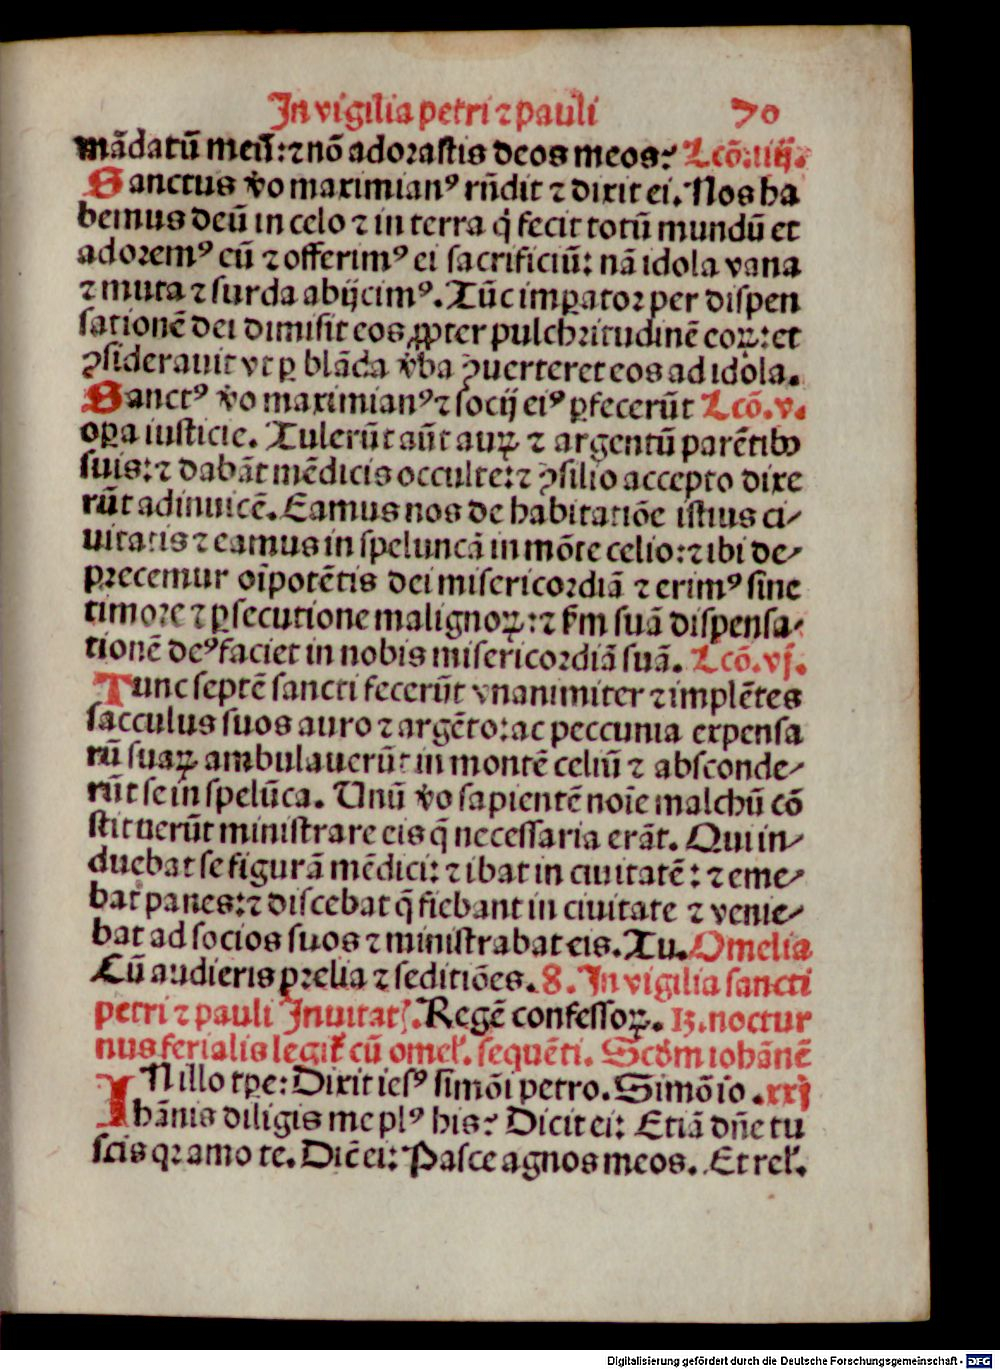 In vigilia petri ⁊ pauli 70
mādatū meū: ⁊ nō adorastis deos meos? Lcō. iiij.
Sanctus v̄o maximianꝰ rn̄dit ⁊ dixit ei. Nos ha
bemus deū in celo ⁊ in terra q̇ fecit totū mundū et
adoremꝰ eū ⁊ offerimꝰ ei sacrificiū: nā idola vana
⁊ muta ⁊ surda abijcimꝰ. Tūc imꝑator per dispen
sationē dei dimisit eos ꝓpter pulchritudinē eoꝝ: et
ꝯsiderauit vt ꝑ blāda v̄ba ꝯuerteret eos ad idola.
Sanctꝰ v̄o maximianꝰ ⁊ socij eiꝰ ꝑfecerūt Lcō. v.
oꝑa iusticie. Tulerūt aūt auꝝ ⁊ argentū parētibꝰ
suis: ⁊ dabāt mēdicis occulte: ⁊ ꝯsilio accepto dixe
rūt adinuicē. Eamus nos de habitatiōe istius ci/
uitatis ⁊ eamus in speluncā in mōte celio: ⁊ ibi de/
precemur oīpotētis dei misericordiā ⁊ erimꝰ sine
timore ⁊ ꝑsecutione malignoꝝ: ⁊ km̄ suā dispensa/
tionē deꝰ faciet in nobis misericordiā suā. Lcō. vj.
Tunc septē sancti fecerūt vnanimiter ⁊ implētes
sacculus suos auro ⁊ argēto: ac peccunia expensa
rū suaꝝ ambulauerūt in montē celiū ⁊ absconde/
rūt se in spelūca. Unū v̄o sapientē noīe malchū cō
stituerūt ministrare eis q̄ necessaria erāt. Qui in/
duebat se figurā mēdici: ⁊ ibat in ciuitatē: ⁊ eme/
bat panes: ⁊ discebat q̄ fiebant in ciuitate ⁊ venie/
bat ad socios suos ⁊ ministrabat eis. Tu. Omelia
Cū audieris prelia ⁊ seditiōes. 8. In vigilia sancti
petri ⁊ pauli Inuitat. Regē confessoꝝ. 13. noctur
nus ferialis legit̄ cū omel̄. sequēti. Scd̄m iohānē
IN illo tꝑe: Dixit iesꝰ simōi petro. Simō io .xxj
hānis diligis me plꝰ his? Dicit ei: Etiā dn̄e tu
scis qꝛ amo te. Dic̄ ei: Pasce agnos meos. Et rel̄.
Digitalisierung gefördert durch die Deutsche Forschungsgemeinschaft - DFG